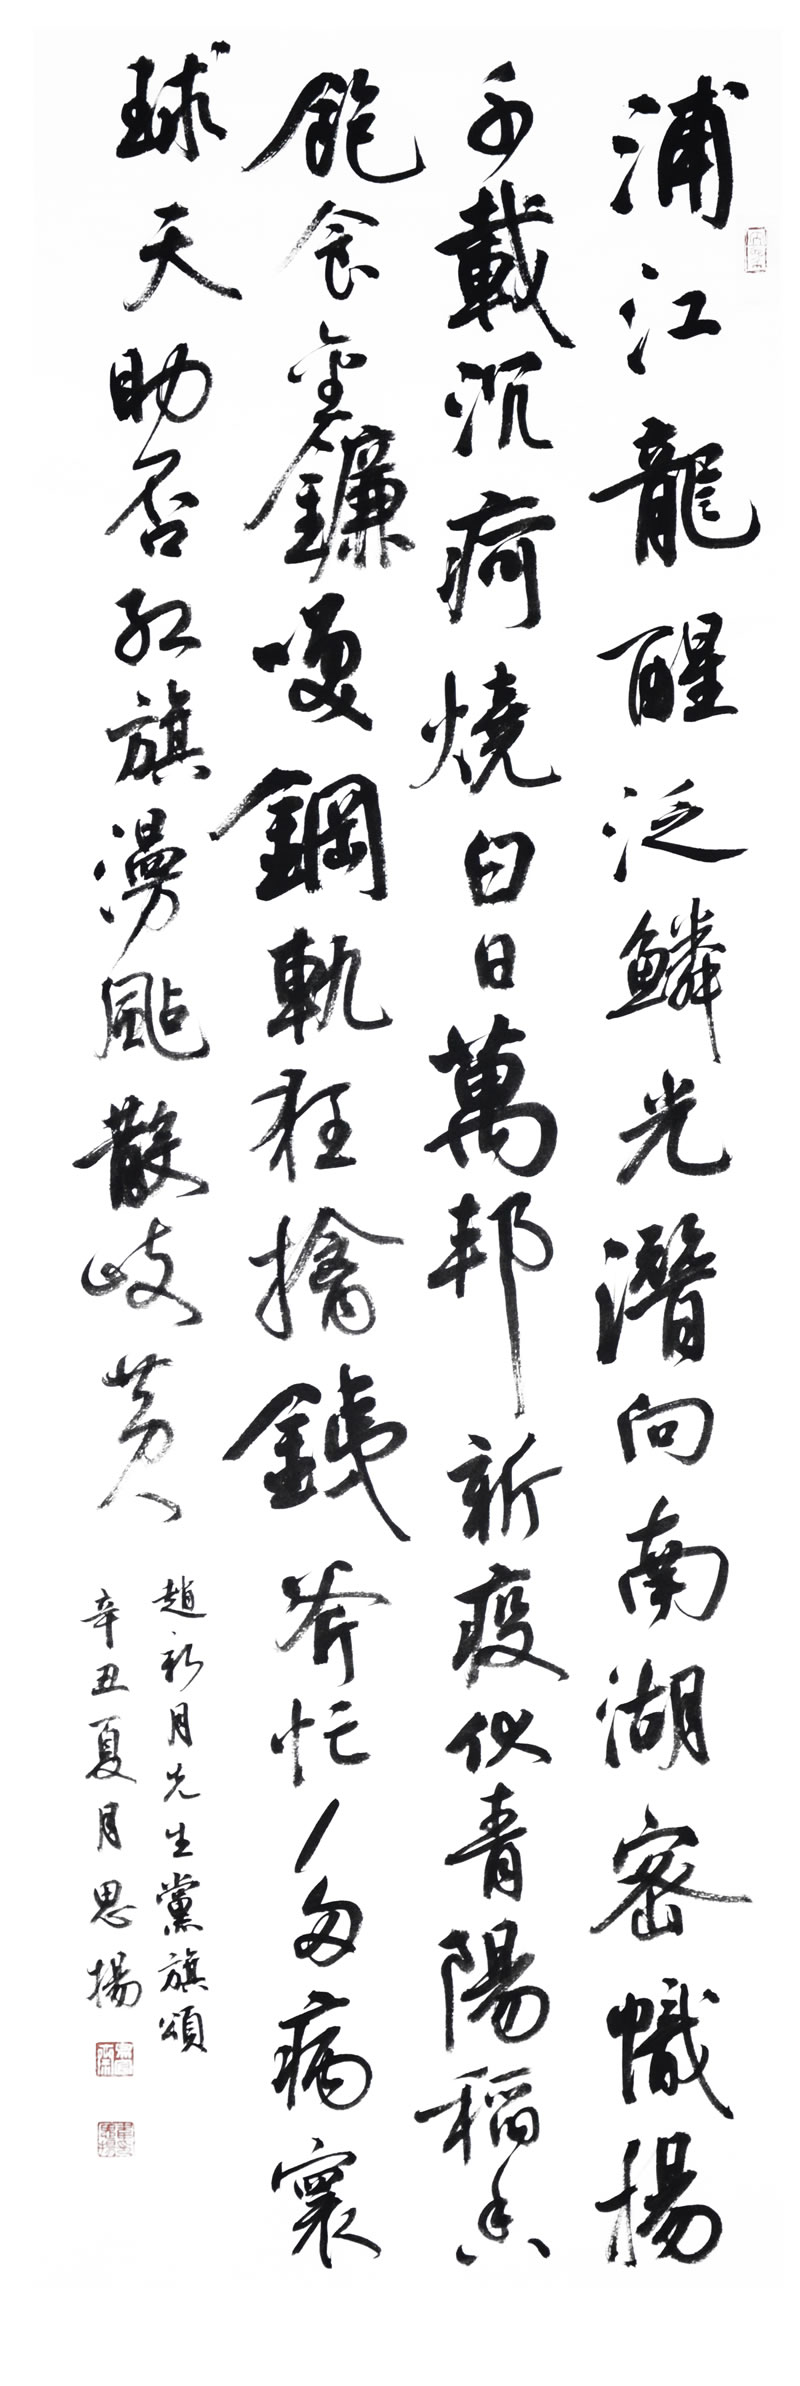 浦江龍醒泛鱗光潛向南湖密幟揚
千載沉疴燒白日萬邦新疫似青陽稻香
飽食金鐮嗄鋼軌狂擒鐵斧忙人勿病寰
球天助否紅旗漫颭散岐黄
趙新月先生黨旗頌
辛丑夏月思揚